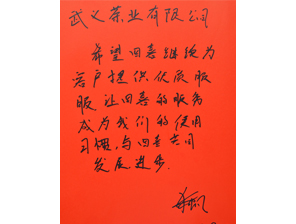 武义茶业有限公司
希望四喜继续为
客户提供优质服
服让四喜的服务
成为我们的使用
习惯,与四喜共同
发展进步.